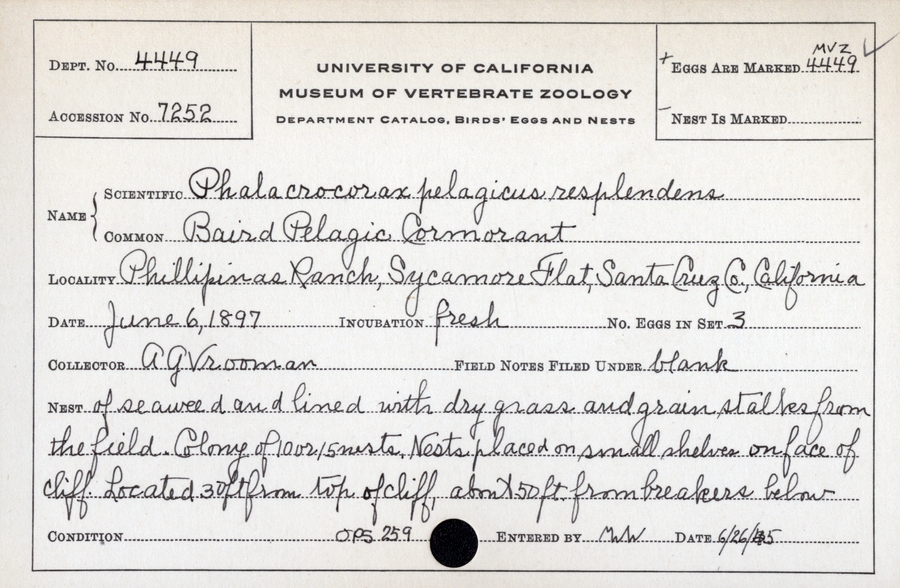 Dept. No. 4449
Accession No. 7252
UNIVERSITY OF CALIFORNIA
MUSEUM OF VERTEBRATE ZOOLOGY
Department Catalog, Birds' Eggs and Nests
MVZ
+ Eggs Are Marked 4449 ✓
- Nest Is Marked
Name { Scientific Phalacrocorax pelagicus resplendens
Common Baird Pelagic Cormorant
Locality Phillipinas Ranch, Sycamore Flat, Santa Cruz Co., California
Date June 6, 1897 Incubation fresh No. Eggs in Set 3
Collector A G Vrooman Field Notes Filed Under blank
Nest of seaweed and lined with dry grass and grain stalkes from
the field. Colony of 10 or 15 nests. Nests placed on small shelves on face of
cliff. Located 30ft from top of cliff, about 50ft from breakers below
Condition OPS 259 Entered by MW Date 6/26/45